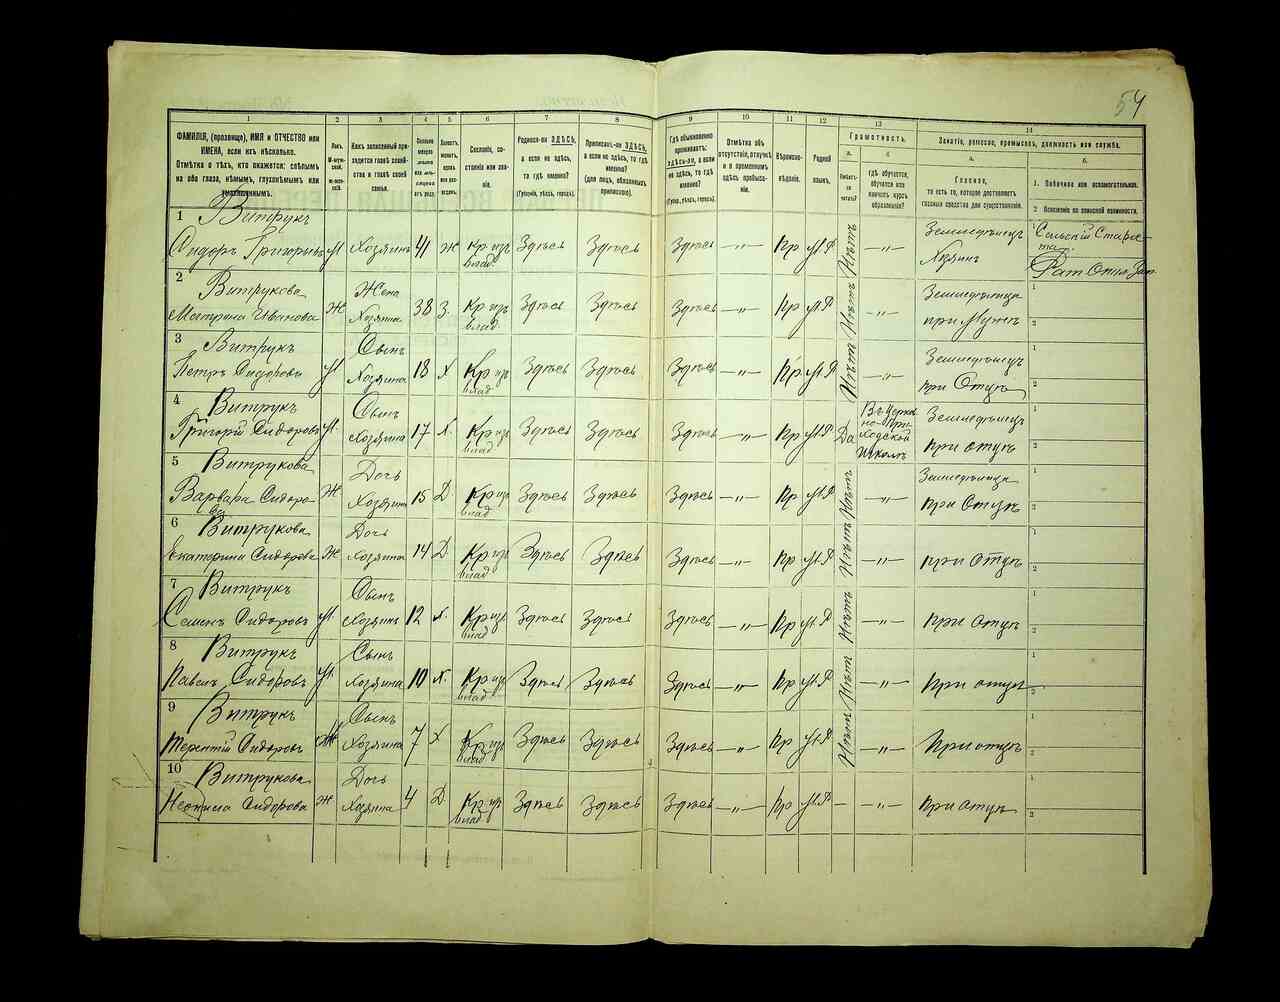 54
1 2 3 4 5 6 7 8 9 10 11 12 13 14
ФАМИЛІЯ, (прозвище), ИМЯ и ОТЧЕСТВО или ИМЕНА, если ихъ нѣсколько.
Отмѣтка о тѣхъ, кто окажется: слѣпымъ на оба глаза, нѣмымъ, глухонѣмымъ или умалишеннымъ.
Полъ.
М-мужской.
Ж-женскій.
Какъ записанный приходится главѣ хозяйства и главѣ своей семьи.
Сословіе, состояніе или званіе.
Родился-ли ЗДѢСЬ, а если не здѣсь, то гдѣ именно?
(Губернія, уѣздъ, городъ).
Приписанъ-ли ЗДѢСЬ, а если не здѣсь, то гдѣ именно?
(для лицъ, обязанныхъ припискою).
Гдѣ обыкновенно проживаетъ: здѣсь-ли, а если не здѣсь, то гдѣ именно?
(Губер., уѣздъ, городъ).
Отмѣтка объ отсутствіи, отлучкѣ и о временномъ здѣсь пребываніи.
Вѣроисповѣданіе.
Родной языкъ.
Грамотность.
а.
Умѣетъ-ли читать?
б
гдѣ обучается, обучался или кончилъ курсъ образованія?
Занятіе, ремесло, промыселъ, должность или служба.
а.
Главное,
то есть то, которое доставляетъ главныя средства для существованія.
б.
1. Побочное или вспомогательное.
2 Положеніе по воинской повинности.
1 Витрукъ
Сидоръ Григорьевъ М Хозяинъ 41 Ж Кр. изъ влад. Здѣсь Здѣсь Здѣсь —„— Пр М.Р Нѣтъ —„— Земледѣлецъ Хозяинъ 1 Сельскій Староста
2 Рат. Опол.
2 Витрукова
Матрона Иванова Ж Жена Хозяина 38 З. Кр. изъ влад. Здѣсь Здѣсь Здѣсь —„— Пр М.Р Нѣтъ —„— Земледѣлица при Мужѣ 1
2
3 Витрукъ
Петръ Сидоровъ М Сынъ Хозяина 18 Х Кр изъ влад Здѣсь Здѣсь Здѣсь —„— Пр М.Р Нѣтъ —„— Земледѣлецъ при Отцѣ 1
2
4 Витрукъ
Григорій Сидоровъ М. Сынъ Хозяина 17 Х. Кр изъ влад Здѣсь Здѣсь Здѣсь —„— Пр М.Р Да Въ Церковно-Приходской Школѣ Земледѣлецъ при отцѣ 1
2
5 Витрукова
Варвара Сидорова Ж Дочь Хозяина 15 Д. Кр изъ влад Здѣсь Здѣсь Здѣсь —„— Пр М.Р Нѣтъ —„— Земледѣлица при Отцѣ 1
2
6 Витрукова
Екатерина Сидорова Ж Дочь Хозяина 14 Д. Кр изъ влад Здѣсь Здѣсь Здѣсь —„— Пр М.Р Нѣтъ —„— при Отцѣ 1
2
7 Витрукъ
Семенъ Сидоровъ М. Сынъ Хозяина 12 Х. Кр изъ влад Здѣсь Здѣсь Здѣсь —„— Пр М.Р Нѣтъ —„— при отцѣ 1
2
8 Витрукъ
Павелъ Сидоровъ М. Сынъ Хозяина 10 Х. Кр изъ влад Здѣсь Здѣсь Здѣсь —„— Пр М.Р Нѣтъ —„— При отцѣ 1
2
9 Витрукъ
Терентій Сидоровъ М Сынъ Хозяина 7 Х Кр изъ влад Здѣсь Здѣсь Здѣсь —„— Пр М.Р Нѣтъ —„— При отцѣ 1
2
10 Витрукова
Сидорова Ж Дочь Хозяина 4 Д. Кр изъ влад Здѣсь Здѣсь Здѣсь —„— Пр М.Р — —„— при отцѣ 1
2